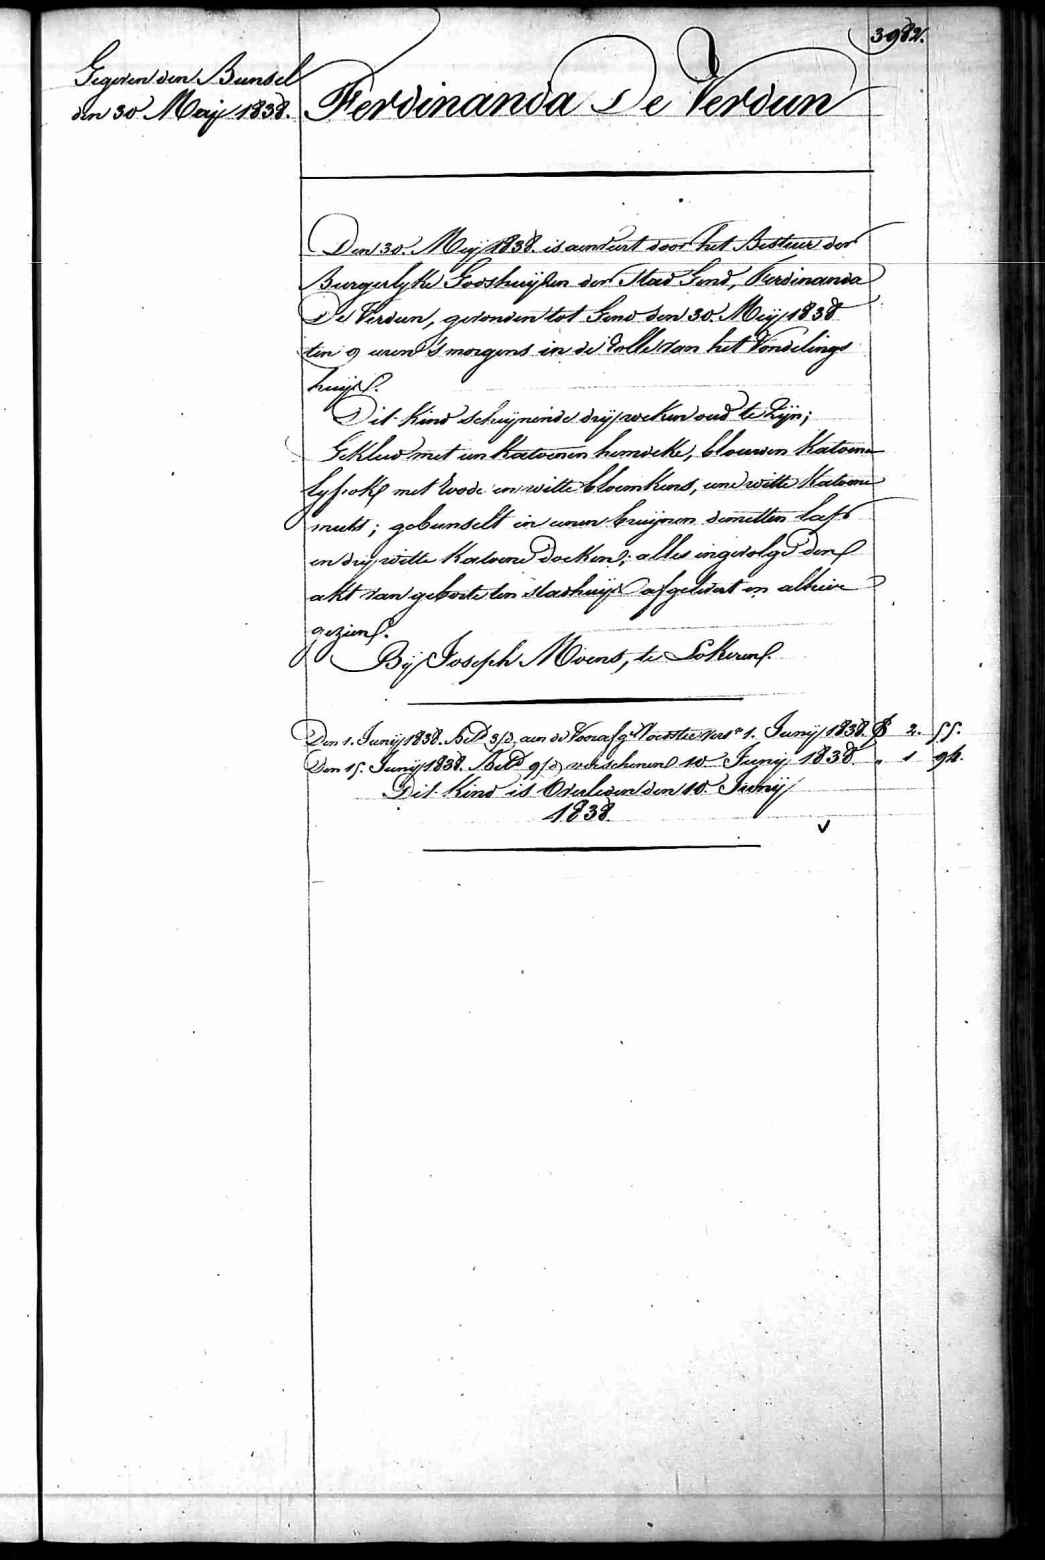 3982.
Gegeven den Bunsel
den 30 Meij 1838.
Ferdinanda De Verdun
Den 30. Meij 1838. is aenveirt door het Bestuer der
Burgerlyke Godshuijsen der Stad Gend, Ferdinanda
De Verdun, gevonden tot Gend den 30. Meij 1838
ten 9 uren 's morgens in de Rolle van het Vondelings
huijs.
Dit Kind schijnende drij weken oud te zijn;
Gekleed met een Katoenen hemdeke, blauwen Katoene
lyfrok met roode en witte bloemkens, eene witte Katoene
muts; gebunselt in eenen bruijnen demitten lap
en drij witte Katoene Doeken; alles ingevolge den
akt van geboorte ten stadhuijse afgelevert en alhier
gezien.
Bij Joseph Moens, te Lokeren.
Den 1. Junij 1838. Betd 3/d aen de Voorafge Voedster vers. 1. Junij 1838. ₣ 2. 55.
Den 15. Junij 1838. Betd 9/d verschenen 10 Junij 1838. " 1 94.
Dit Kind is Overleden den 10 Junij
1838.